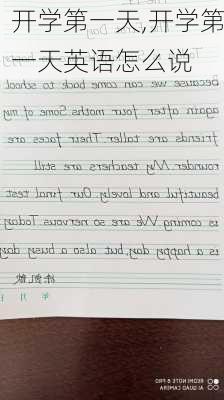 开学第一天,开学第
一天英语怎么说
because we can come back to school
again after four moths. Some of my
friends are taller. Their faces are
rounder. My teachers are still
beautiful and lovely. Our final test
is coming. We are so nervous. Today
is a happy day, but also a busy day
年 月 日
REDMI NOTE 8 PRO
AI QUAD CAMERA